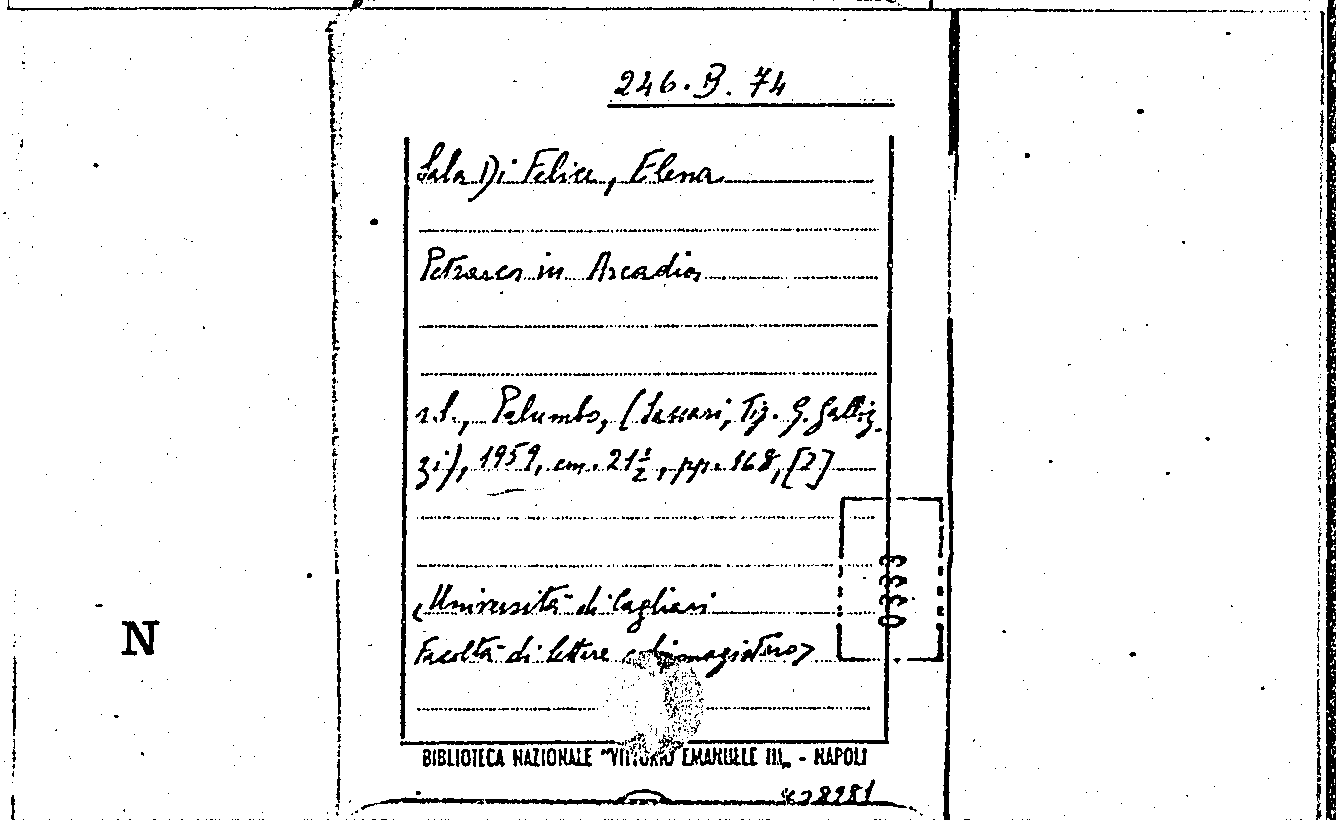 246.B.74
Sala Di Felice, Elena
Petrarca in Arcadia
s.l., Palumbo, (Sassari, Tip. G. Galliz-
zi), 1959, cm. 21½, pp. 168, [2]
0333
(Università di Cagliari
N
Facoltà di lettere e di magistero>
BIBLIOTECA NAZIONALE "VITTORIO EMANUELE III„ - NAPOLI